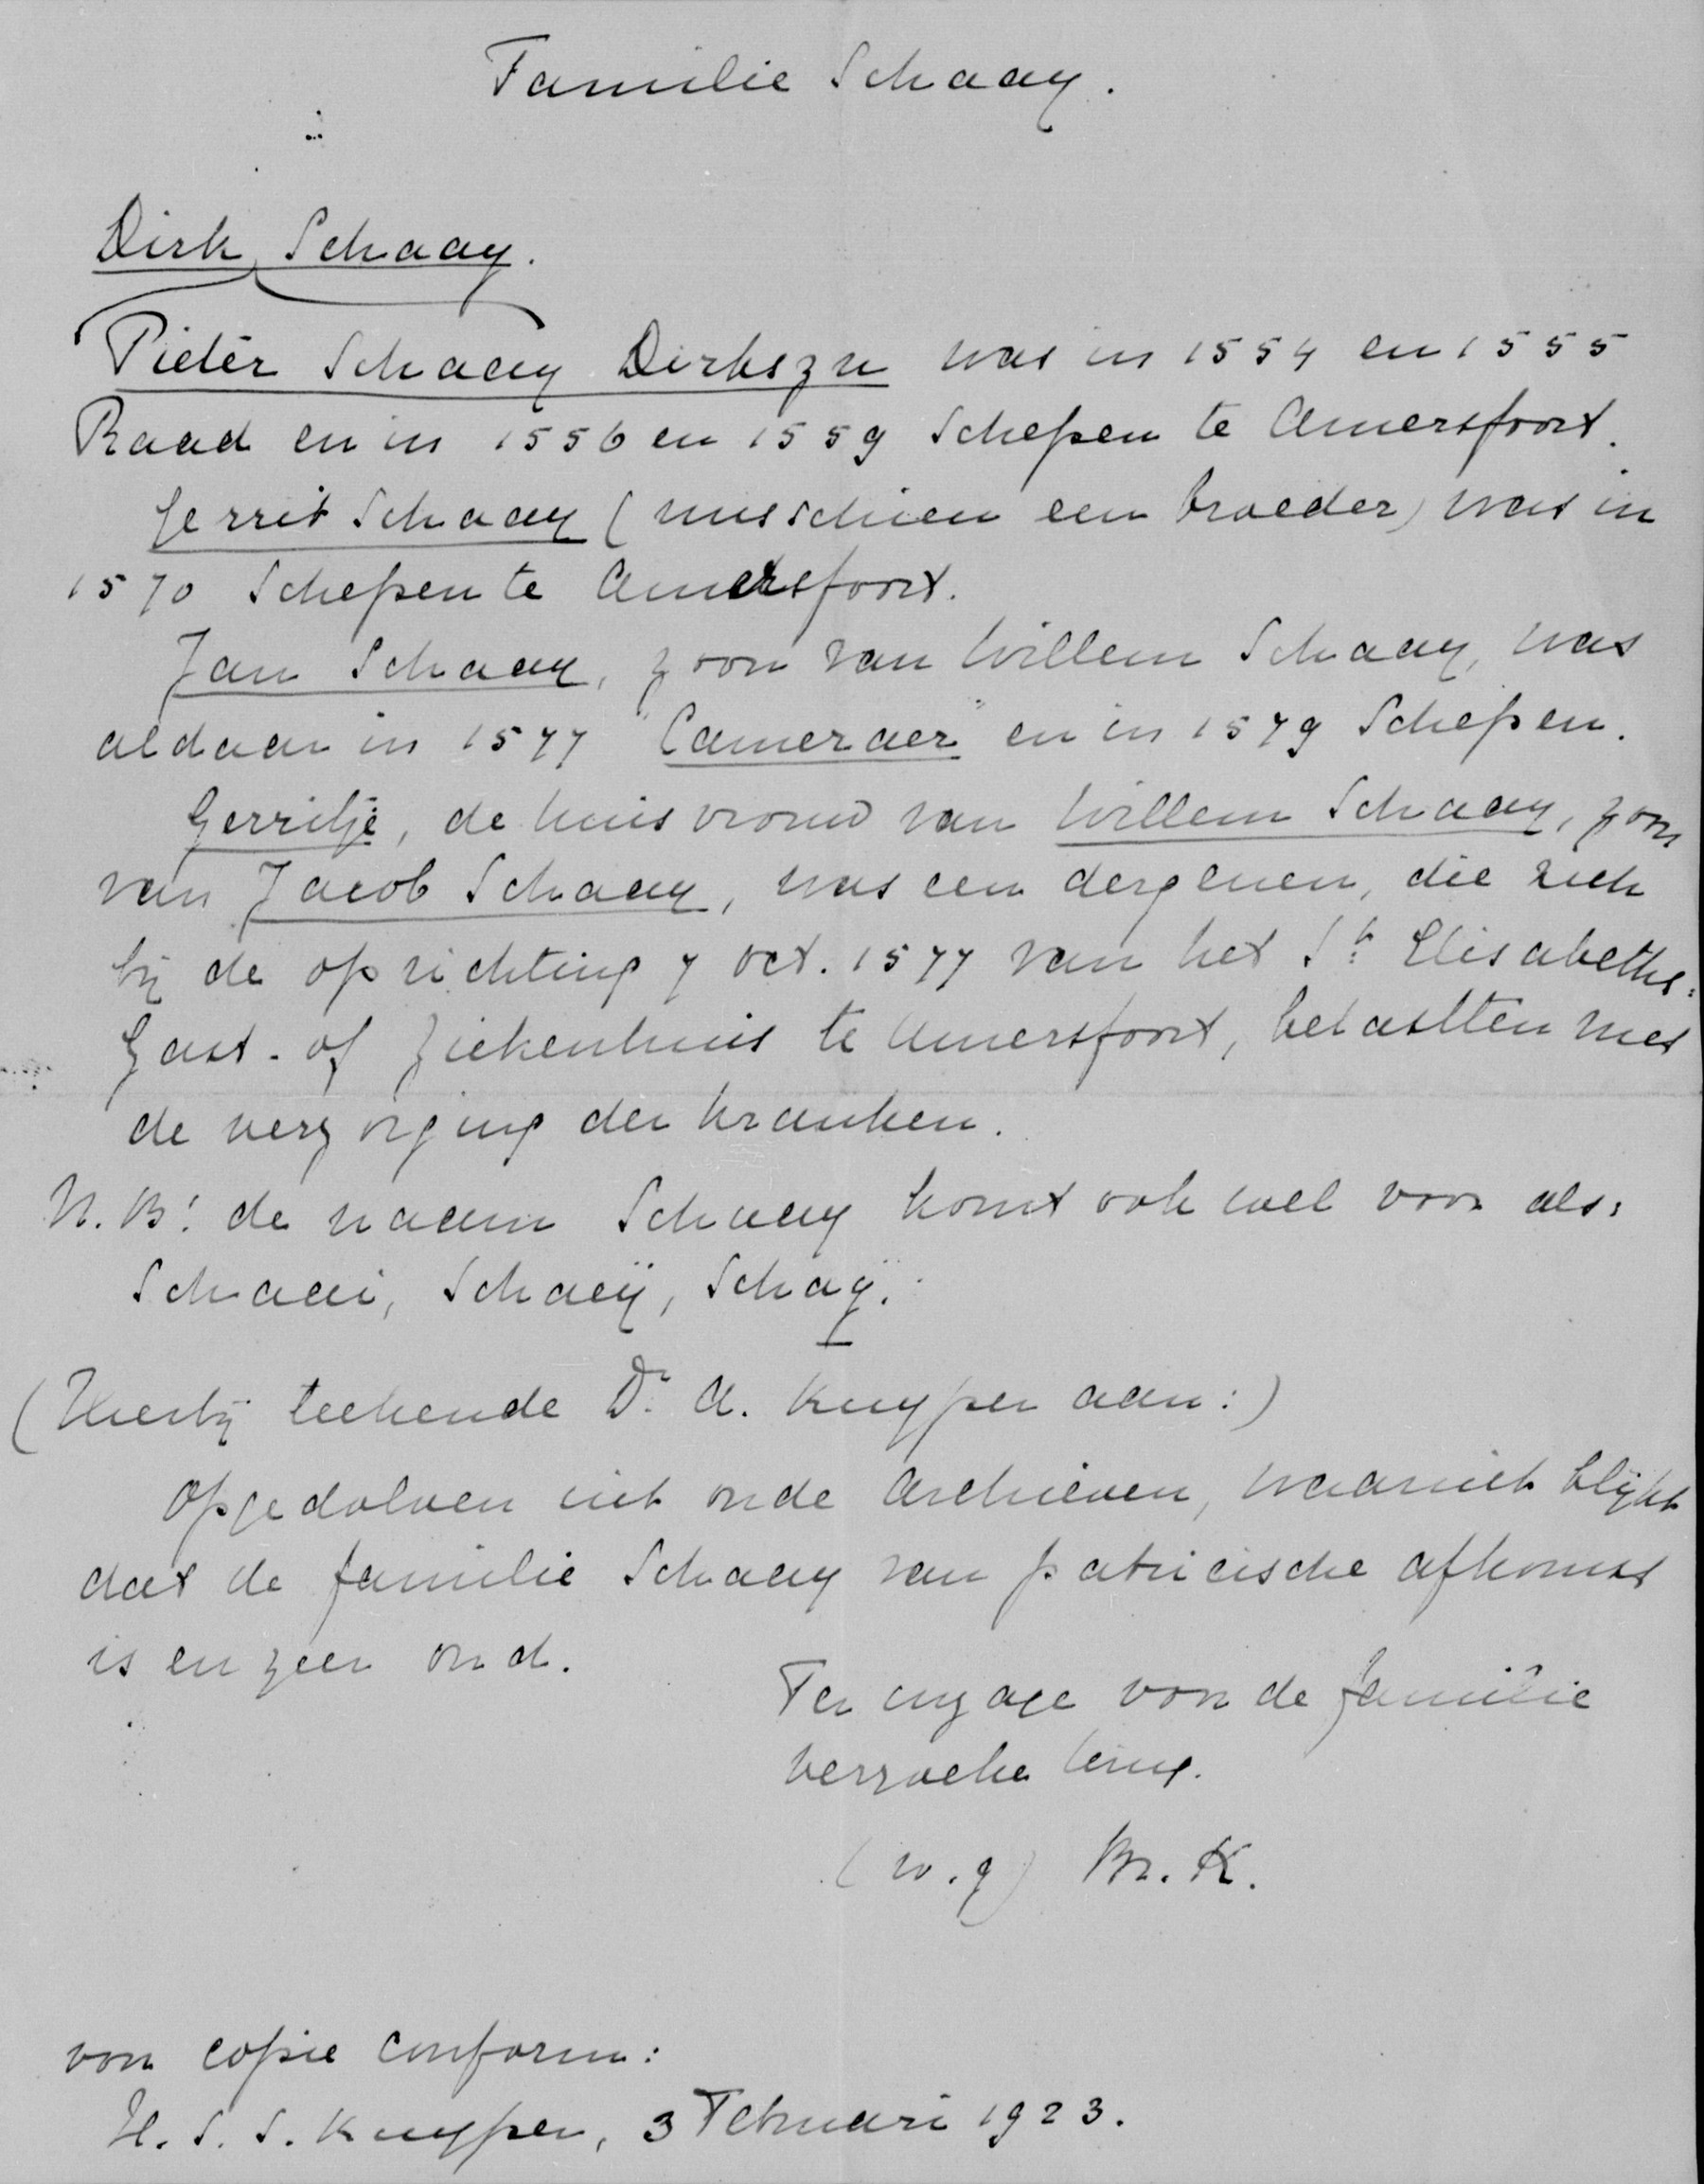 Familie Schaay.
Dirk Schaay.
Pieter Schaay Dirkszn was in 1554 en 1555
Raad en in 1556 en 1559 Schepen te Amersfoort.
Gerrit Schaay (misschien een broeder) was in
1570 Schepen te Amersfoort.
Jan Schaay, zoon van Willem Schaay, was
aldaar in 1577 "Cameraer" en in 1579 Schepen.
Gerritje, de huisvrouw van Willem Schaay, zoon
van Jacob Schaay, was een dergenen, die zich
bij de oprichting 7 Oct. 1577 van het St. Elisabeths-
Gast- of Ziekenhuis te Amersfoort, belastten met
de verzorging der kranken.
N.B. de naam Schaay komt ook wel voor als:
Schaai, Schaeÿ, Schaÿ.
(Hierbij teekende Dr. A. Kuyper aan:)
Opgedolven uit oude Archieven, waaruit blijkt
dat de familie Schaay van patricische afkomst
is en zeer oud.
Ter inzage voor de familie
verzoeke terug.
(w.g) Br. K.
voor copie conform:
H. S. S. Kuyper, 3 Februari 1923.